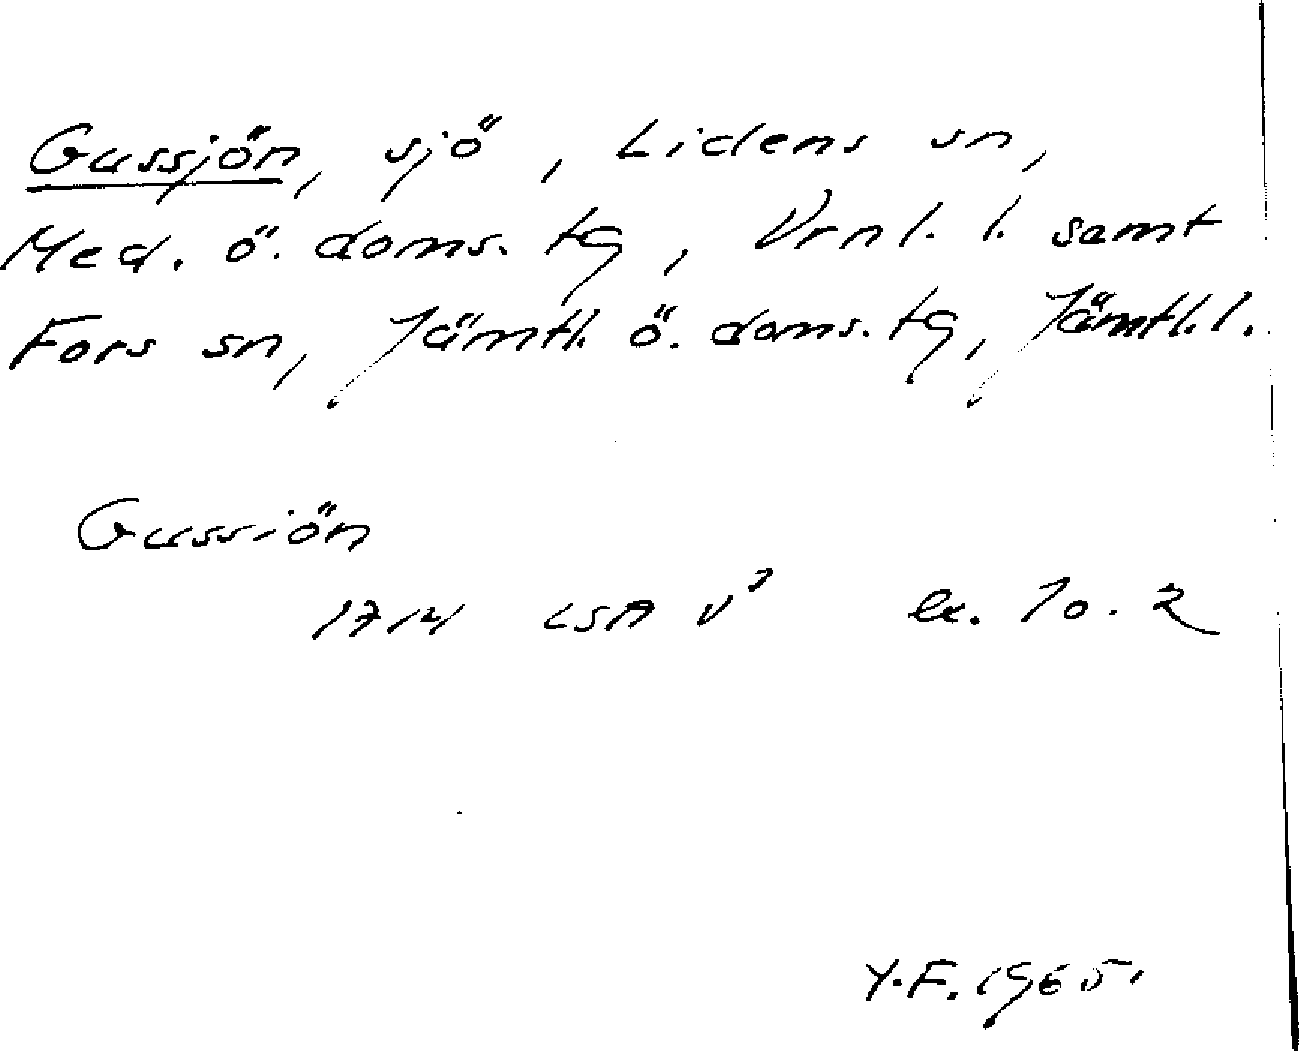 Gussjön, sjö, Lidens sn,
Med. ö. doms. tg, Vrnl. l. samt
Fors sn, Jämtl. ö. doms. tg, Jämtl. l.
Gussiön
1714 LSA V³ lx. 10. 2
Y.F. 1965